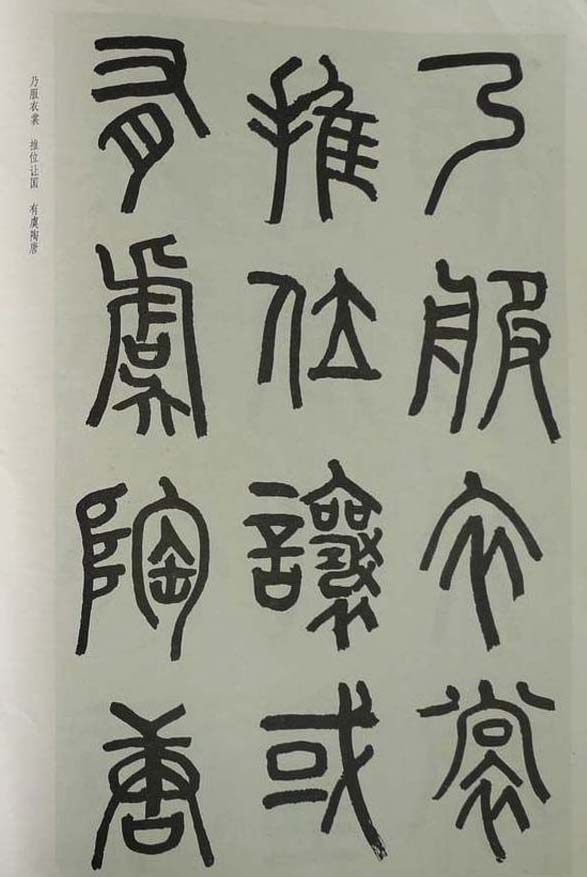 乃服衣裳
推位讓或
有虞陶唐
乃服衣裳 推位让国 有虞陶唐